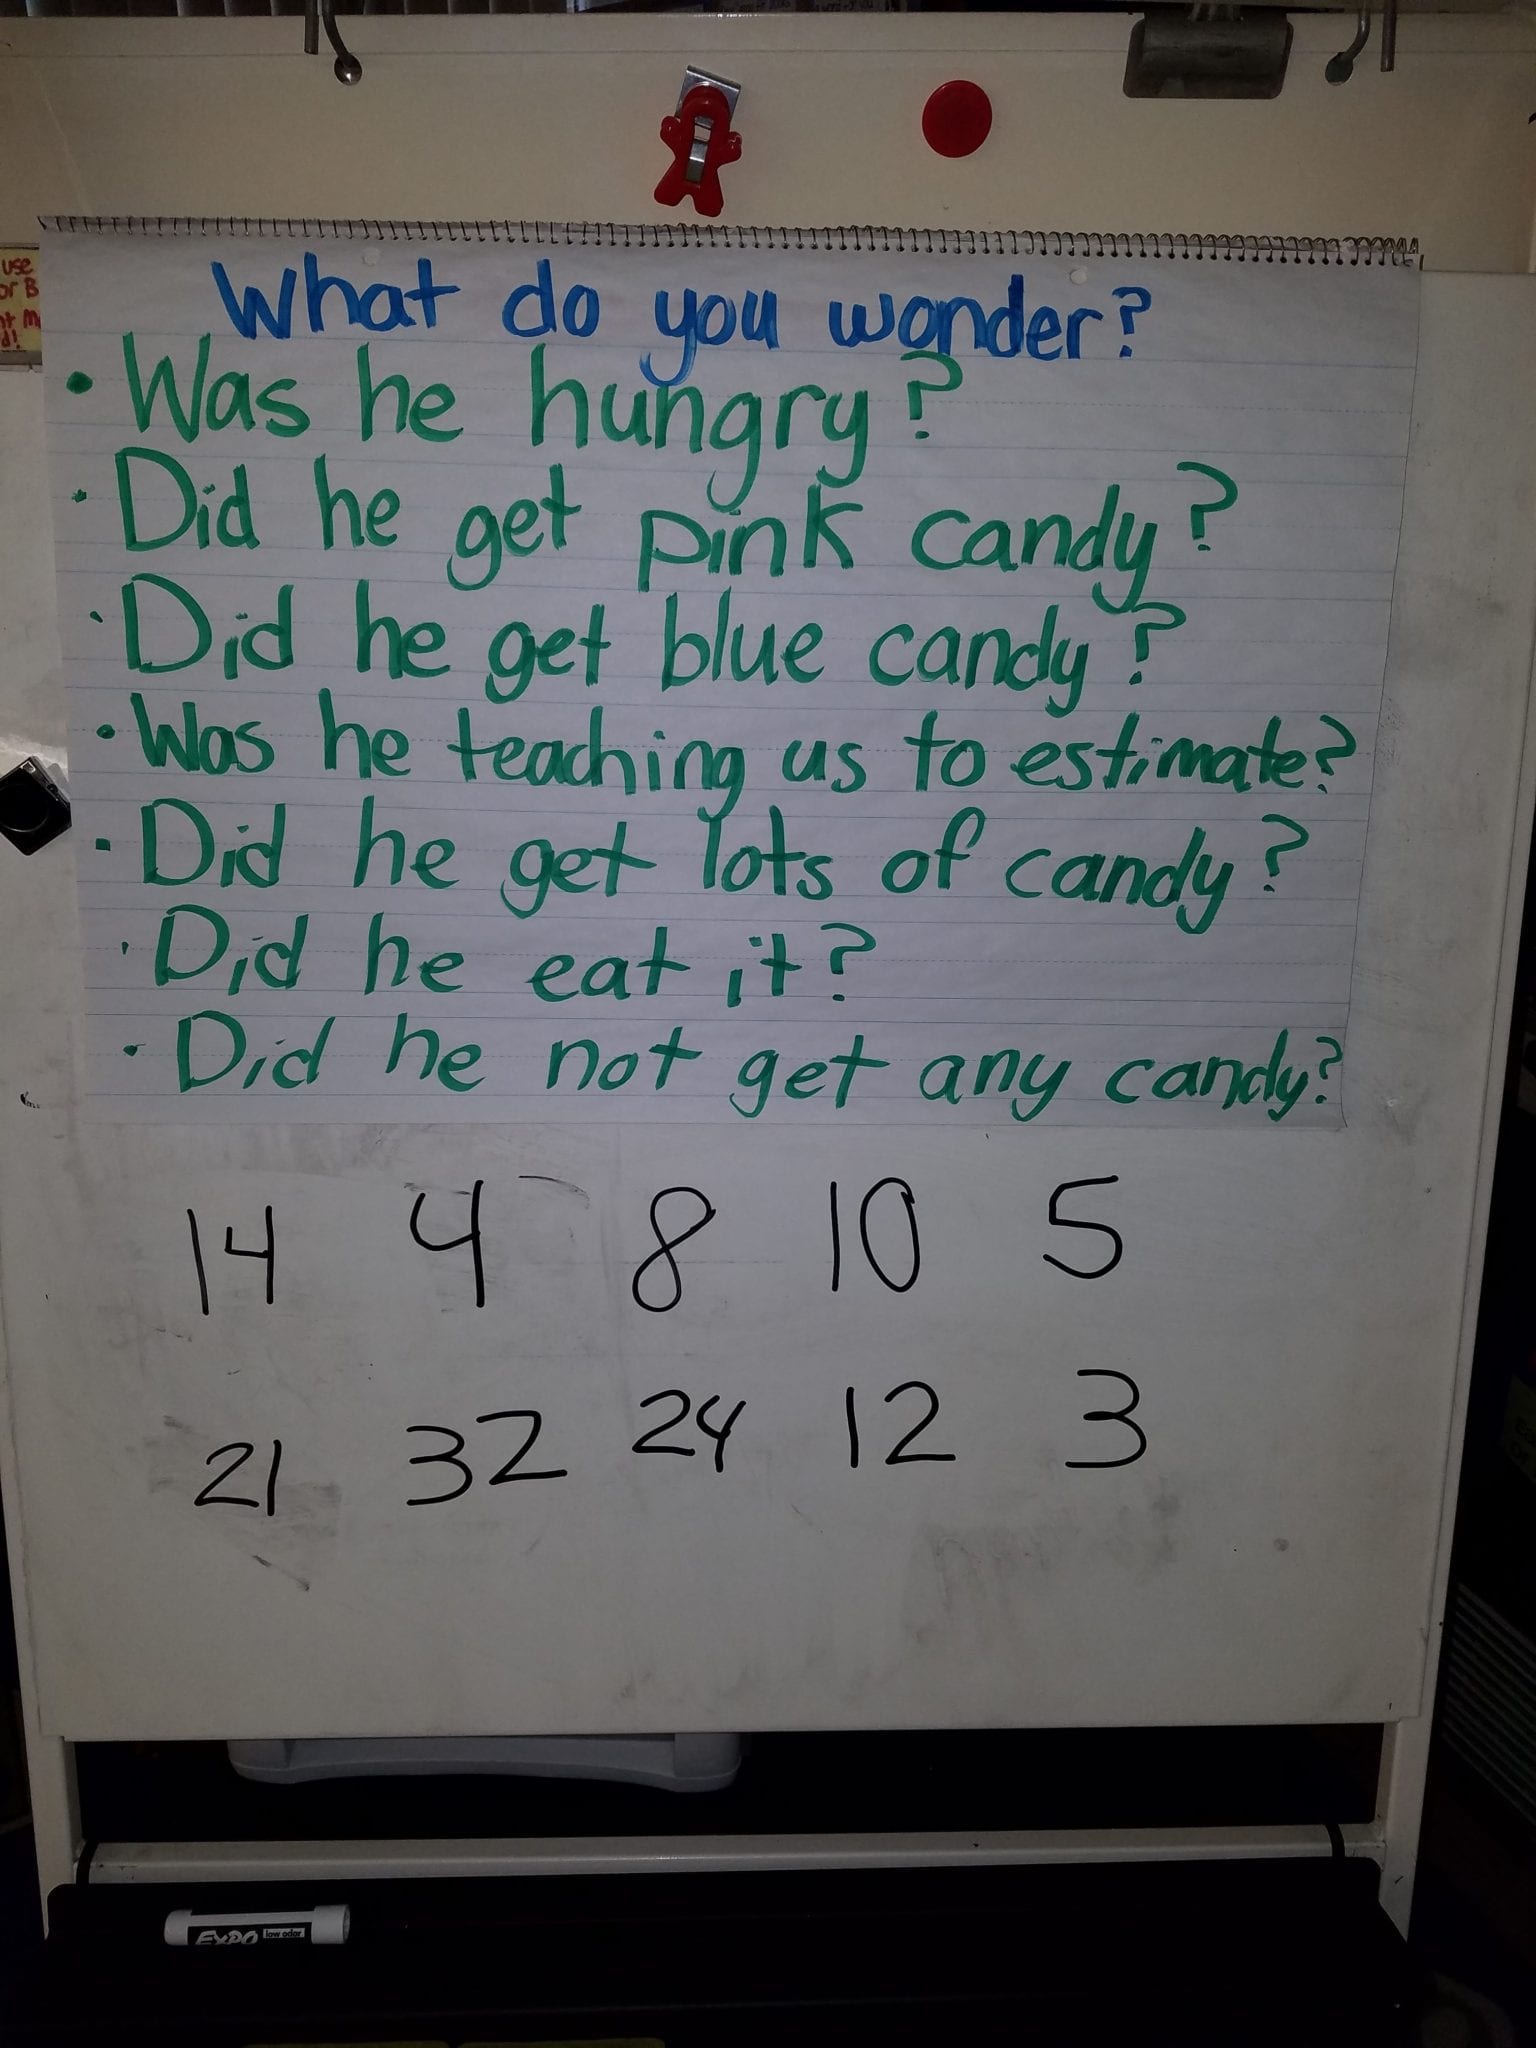 What do you wonder?
• Was he hungry?
• Did he get pink candy?
• Did he get blue candy?
• Was he teaching us to estimate?
• Did he get lots of candy?
• Did he eat it?
• Did he not get any candy?
14 4 8 10 5
21 32 24 12 3
use
or B
EXPO low odor